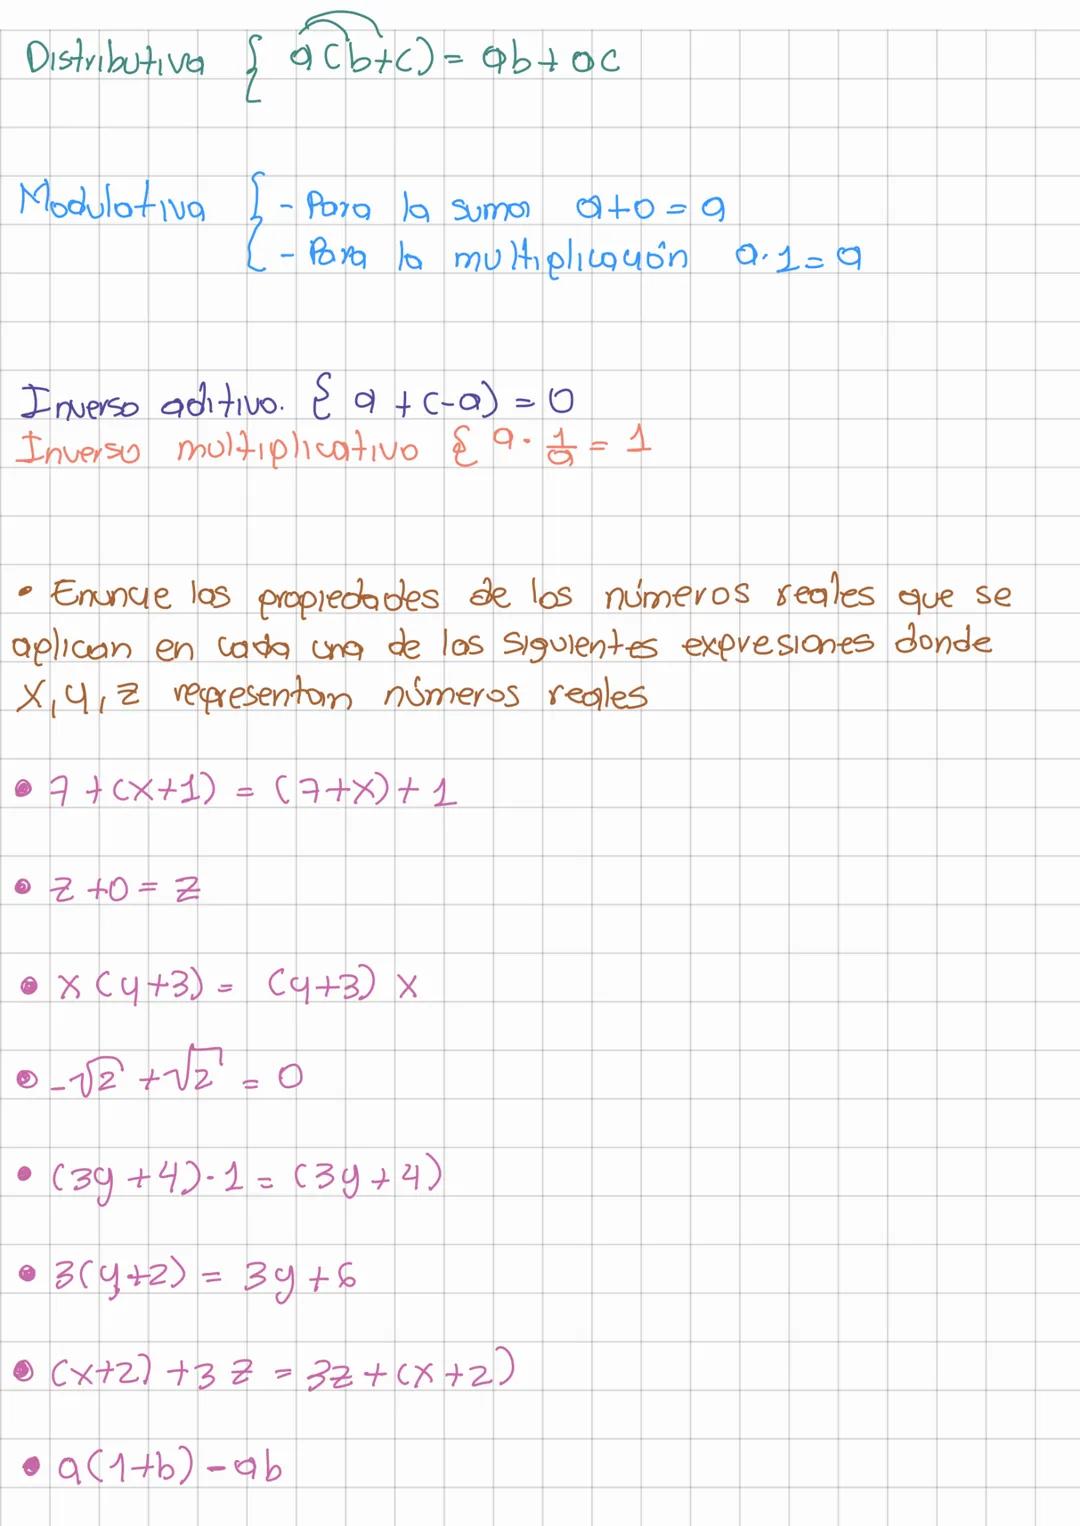 Distributiva { a(b+c) = ab + ac
Modulativa { - Para la suma a+0 = a
- Para la multiplicación a·1 = a
Inverso aditivo. { a + (-a) = 0
Inverso multiplicativo { a · 1/a = 1
• Enuncie las propiedades de los números reales que se
aplican en cada una de las siguientes expresiones donde
x, y, z representan números reales
• 7 + (x+1) = (7+x) + 1
• z + 0 = z
• x (y+3) = (y+3) x
• -√2 + √2 = 0
• (3y + 4)·1 = (3y + 4)
• 3(y+2) = 3y + 6
• (x+2) + 3z = 3z + (x+2)
• a(1+b) - ab